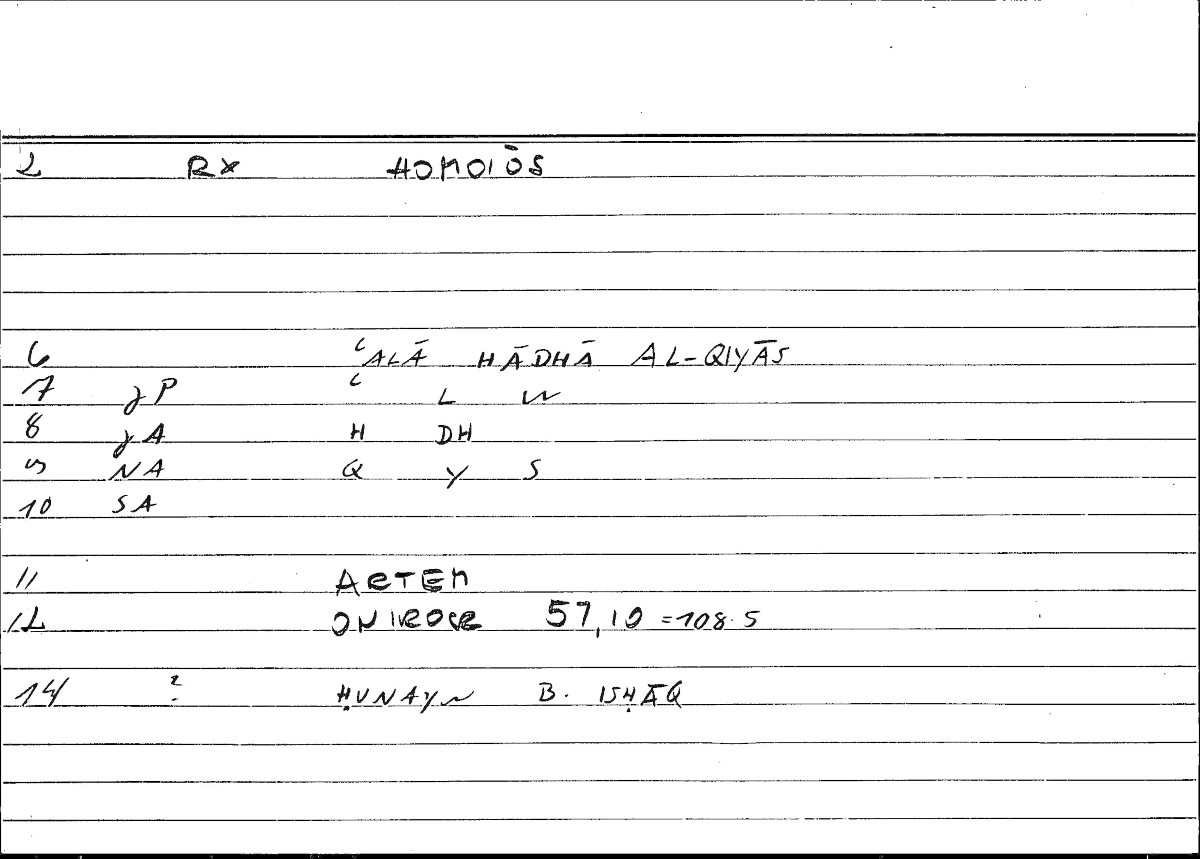 2 RX HOMOIŌS
6 ʿALĀ HĀDHĀ AL-QIYĀS
7 gP ʿ L W
8 gA H DH
9 NA Q Y S
10 SA
11 ARTEM
12 ONIROCR 57,10 =108.5
14 ? ḤUNAYN B. ISḤĀQ